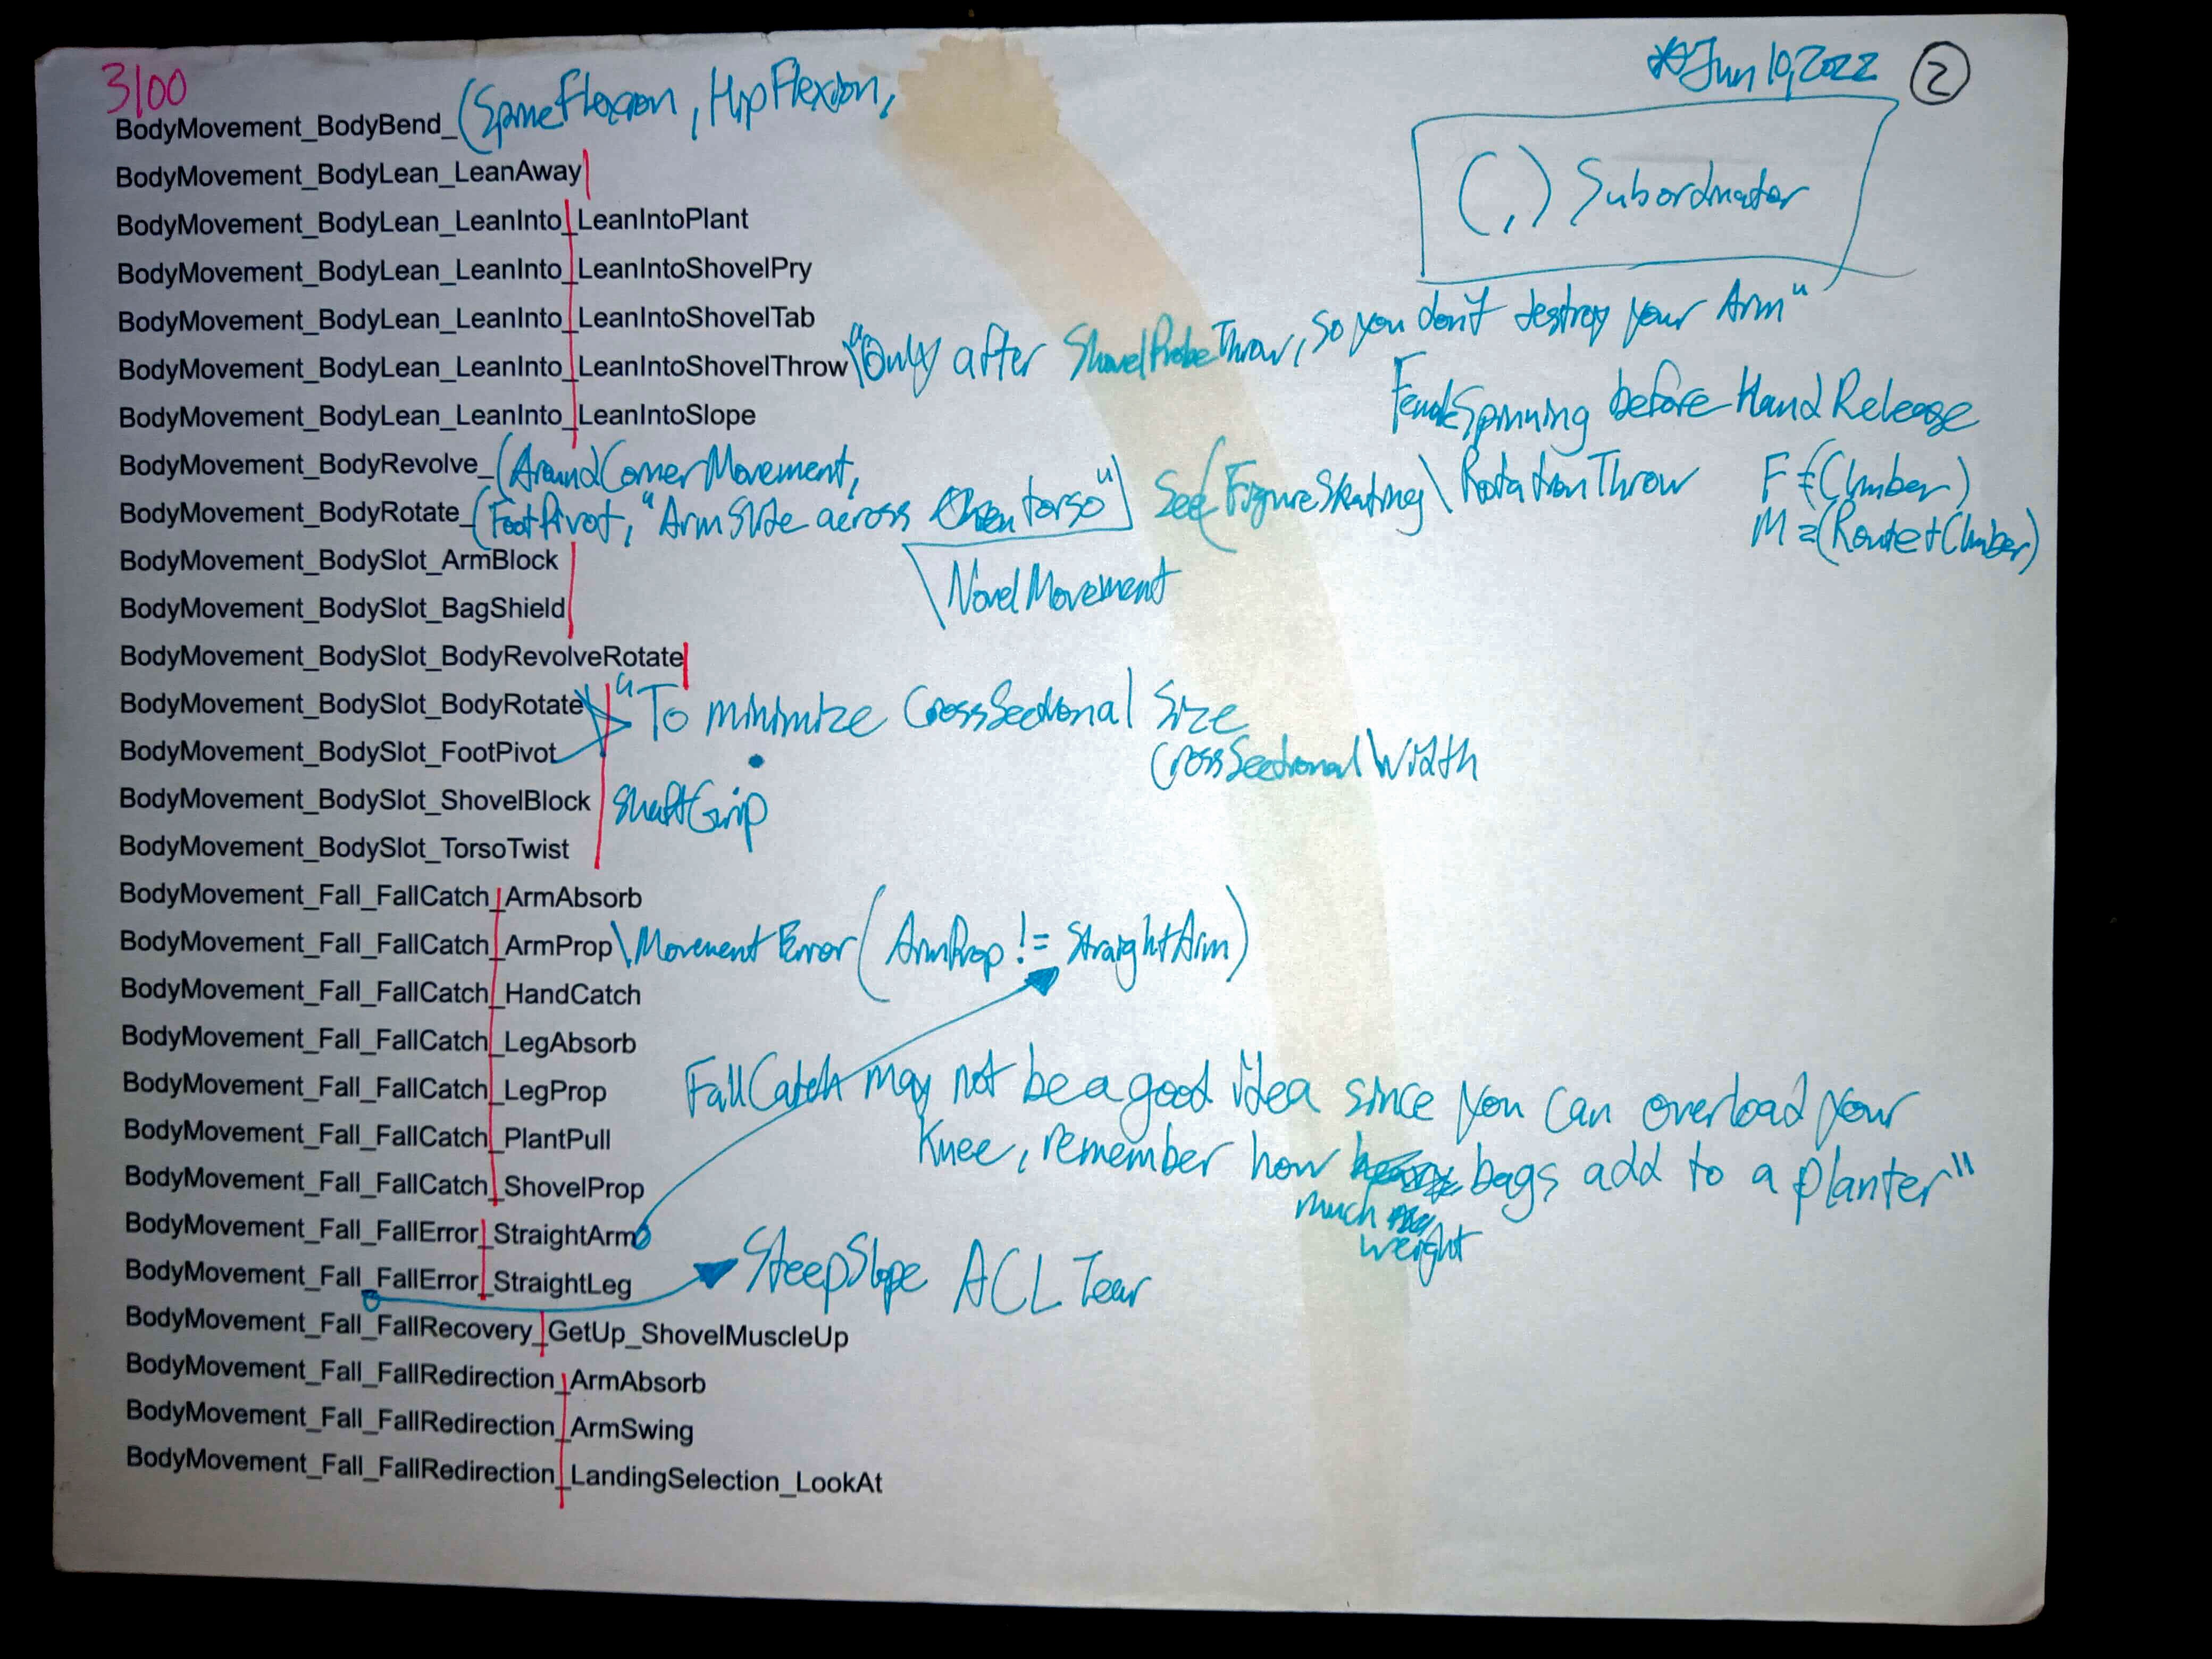 3100
*Jun 10, 2022 ②
BodyMovement_BodyBend_(SpineFlexion, HipFlexion,
(,) Subordinator
BodyMovement_BodyLean_LeanAway|
BodyMovement_BodyLean_LeanInto_LeanIntoPlant
BodyMovement_BodyLean_LeanInto_LeanIntoShovelPry
BodyMovement_BodyLean_LeanInto_LeanIntoShovelTab
BodyMovement_BodyLean_LeanInto_LeanIntoShovelThrow\"Only after ShovelProbeThrow, so you don't destroy your Arm"
BodyMovement_BodyLean_LeanInto_LeanIntoSlope
Spinning before HandRelease
BodyMovement_BodyRevolve_(AroundCornerMovement,
BodyMovement_BodyRotate_(FootPivot, "ArmSlide across torso"] See(FigureSkating\RotationThrow
F = (Climber)
M = (Route+Climber)
\NovelMovement
BodyMovement_BodySlot_ArmBlock
BodyMovement_BodySlot_BagShield
BodyMovement_BodySlot_BodyRevolveRotate
BodyMovement_BodySlot_BodyRotate "To minimize CrossSectional Size
CrossSectionalWidth
BodyMovement_BodySlot_FootPivot
BodyMovement_BodySlot_ShovelBlock ShaftGrip
BodyMovement_BodySlot_TorsoTwist
BodyMovement_Fall_FallCatch_ArmAbsorb
BodyMovement_Fall_FallCatch_ArmProp\Movement Error(ArmProp != StraightArm)
BodyMovement_Fall_FallCatch_HandCatch
BodyMovement_Fall_FallCatch_LegAbsorb
BodyMovement_Fall_FallCatch_LegProp
FallCatch may not be a good idea since you can overload your
Knee, remember how bags add to a planter"
much
weight
BodyMovement_Fall_FallCatch_PlantPull
BodyMovement_Fall_FallCatch_ShovelProp
BodyMovement_Fall_FallError_StraightArm
BodyMovement_Fall_FallError_StraightLeg
SteepSlope ACL Tear
BodyMovement_Fall_FallRecovery_GetUp_ShovelMuscleUp
BodyMovement_Fall_FallRedirection_ArmAbsorb
BodyMovement_Fall_FallRedirection_ArmSwing
BodyMovement_Fall_FallRedirection_LandingSelection_LookAt